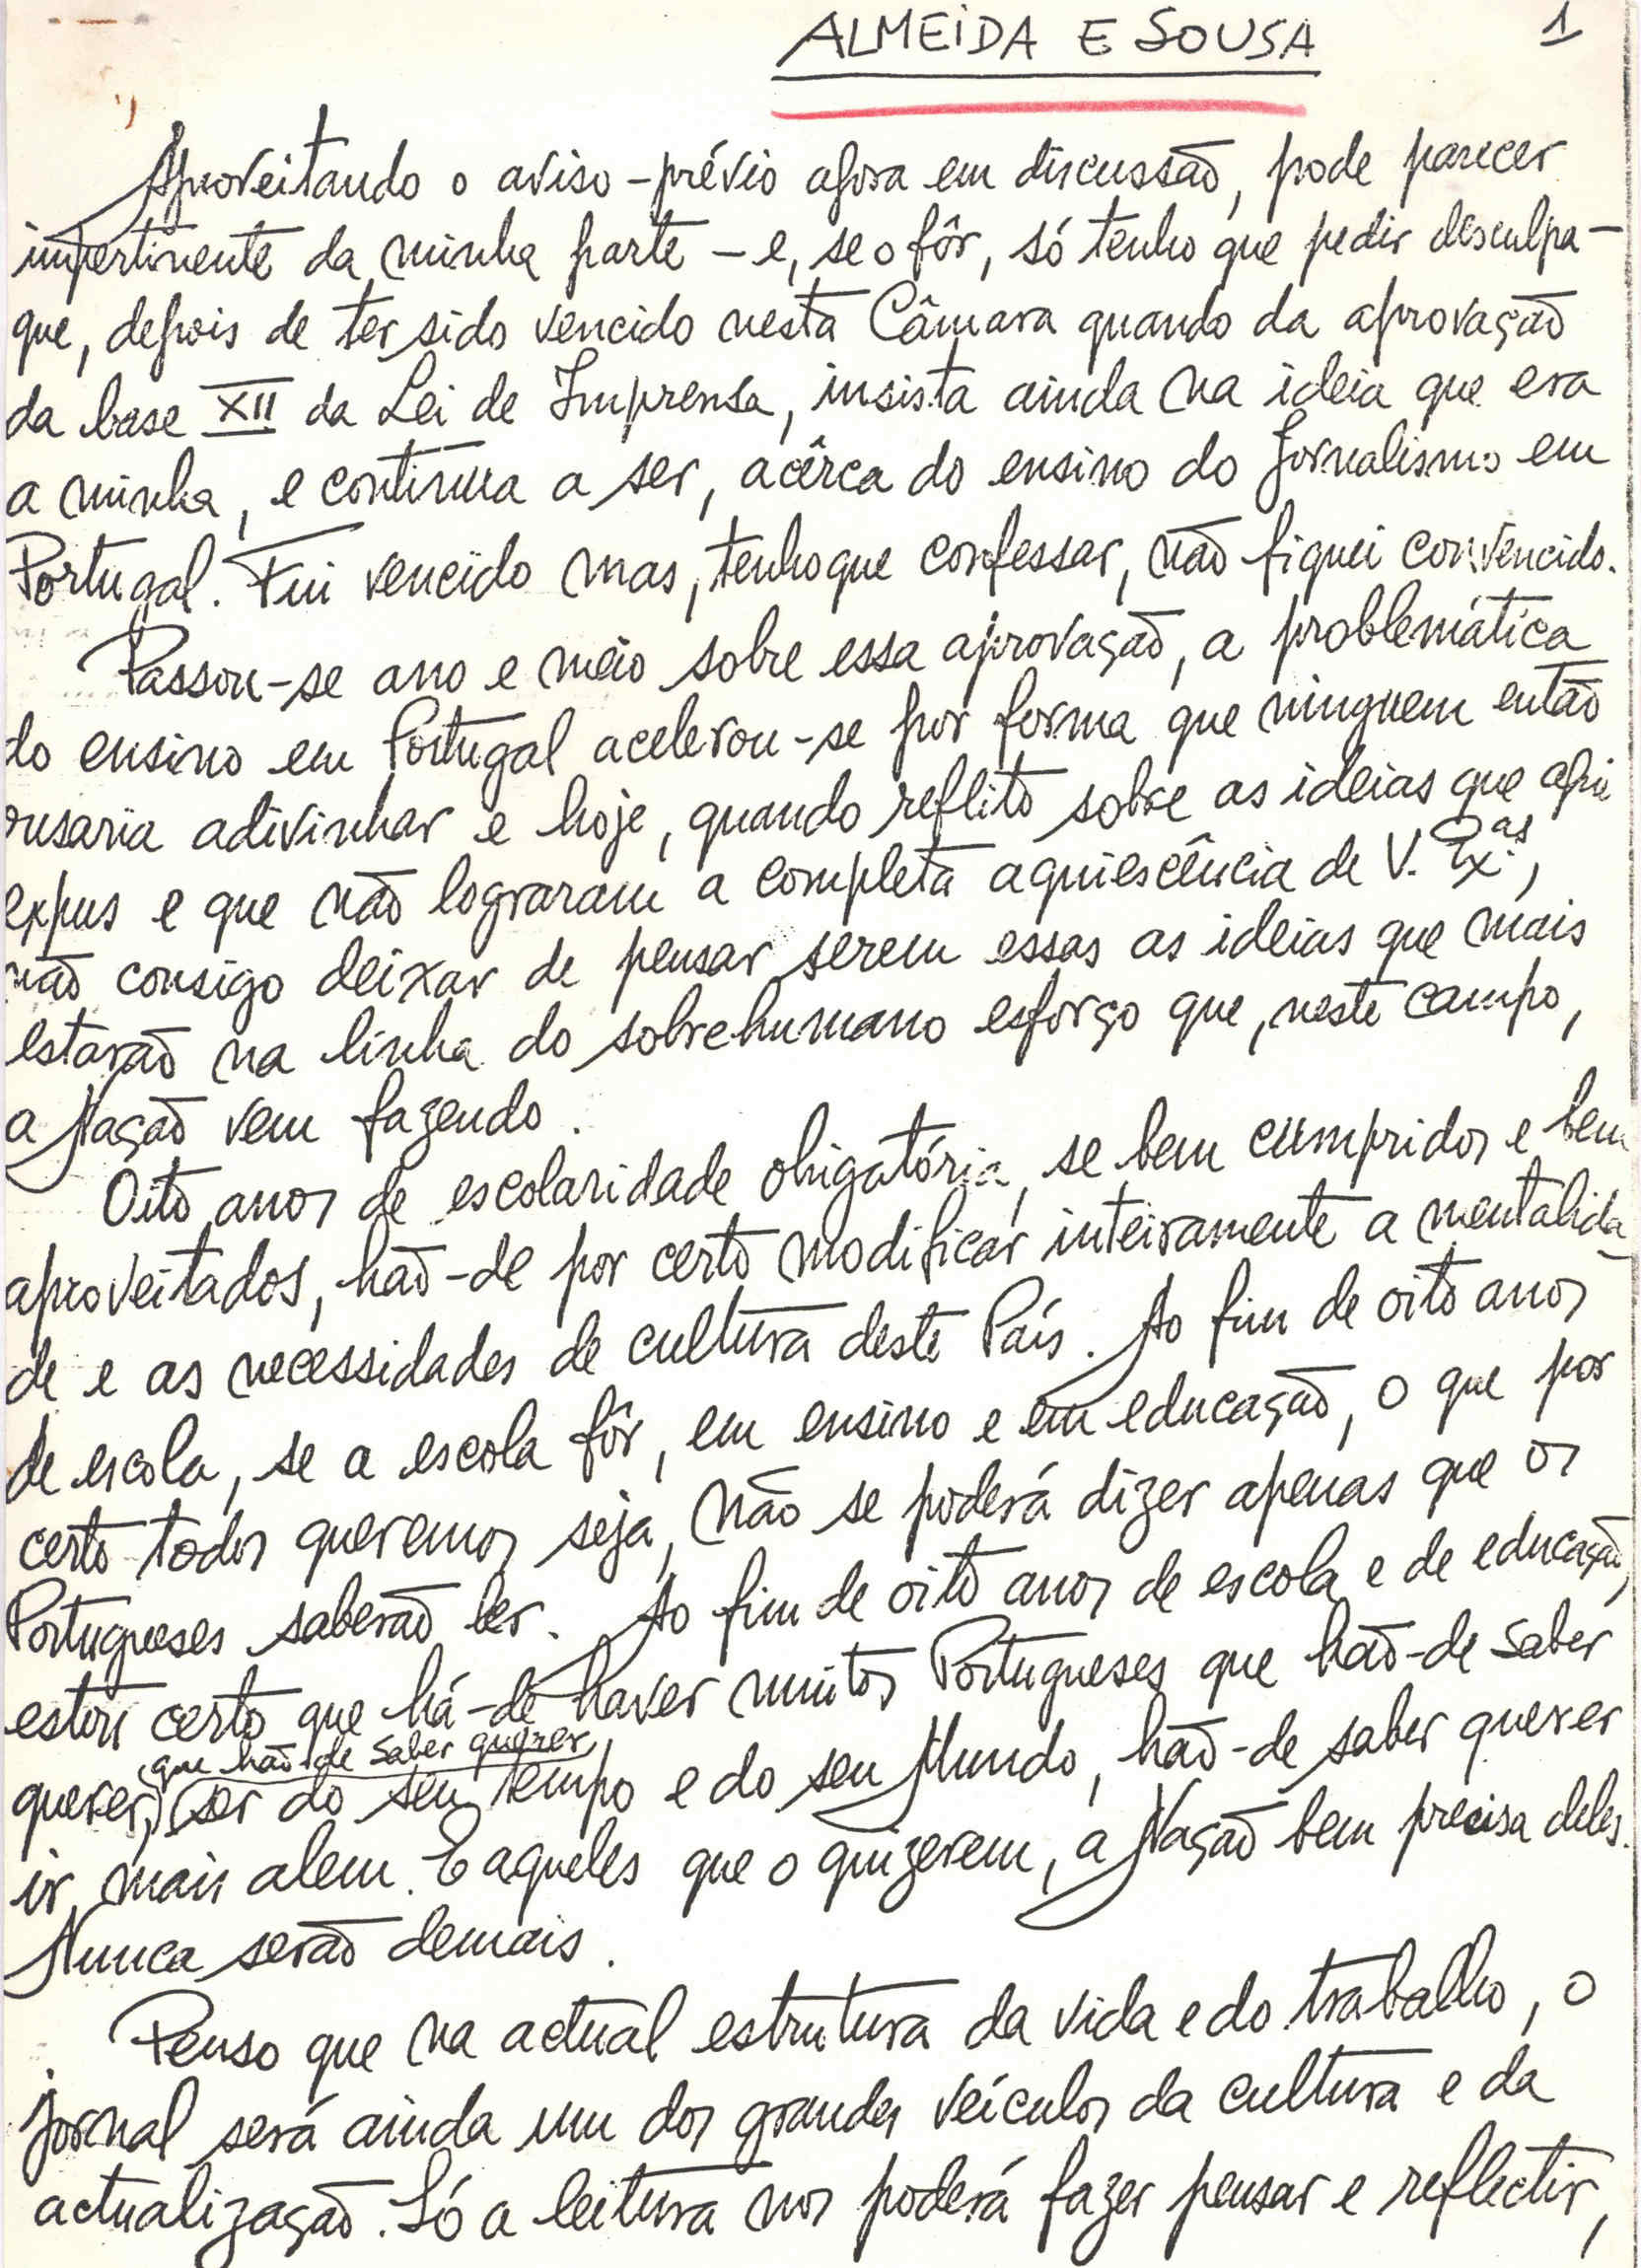 ALMEIDA E SOUSA
1
Aproveitando o aviso-prévio agora em discussão, pode parecer
impertinente da minha parte - e, se o fôr, só tenho que pedir desculpa -
que, depois de ter sido vencido nesta Câmara quando da aprovação
da base XII da Lei de Imprensa, insista ainda na ideia que era
a minha, e continua a ser, acêrca do ensino do Jornalismo em
Portugal. Fui vencido mas, tenho que confessar, não fiquei convencido.
Passou-se ano e meio sobre essa aprovação, a problemática
do ensino em Portugal acelerou-se por forma que ninguem então
ousaria adivinhar e hoje, quando reflito sobre as ideias que aqui
expus e que não lograram a completa aquiescência de V. Ex.as,
não consigo deixar de pensar serem essas as ideias que mais
estarão na linha do sobrehumano esforço que, neste campo,
a Nação vem fazendo.
Oito anos de escolaridade obrigatória, se bem cumpridos e bem
aproveitados, hão-de por certo modificar inteiramente a mentalida-
de e as necessidades de cultura deste País. Ao fim de oito anos
de escola, se a escola fôr, em ensino e em educação, o que por
certo todos queremos seja, não se poderá dizer apenas que os
Portugueses saberão ler. Ao fim de oito anos de escola e de educação,
estou certo que há-de haver muitos Portugueses que hão-de saber
que hão-de saber querer
querer, ser do seu tempo e do seu Mundo, hão-de saber querer
ir mais alem. E aqueles que o quizerem, a Nação bem precisa deles.
Nunca serão demais.
Penso que na actual estrutura da vida e do trabalho, o
jornal será ainda um dos grandes veículos da cultura e da
actualização. Só a leitura nos poderá fazer pensar e reflectir,